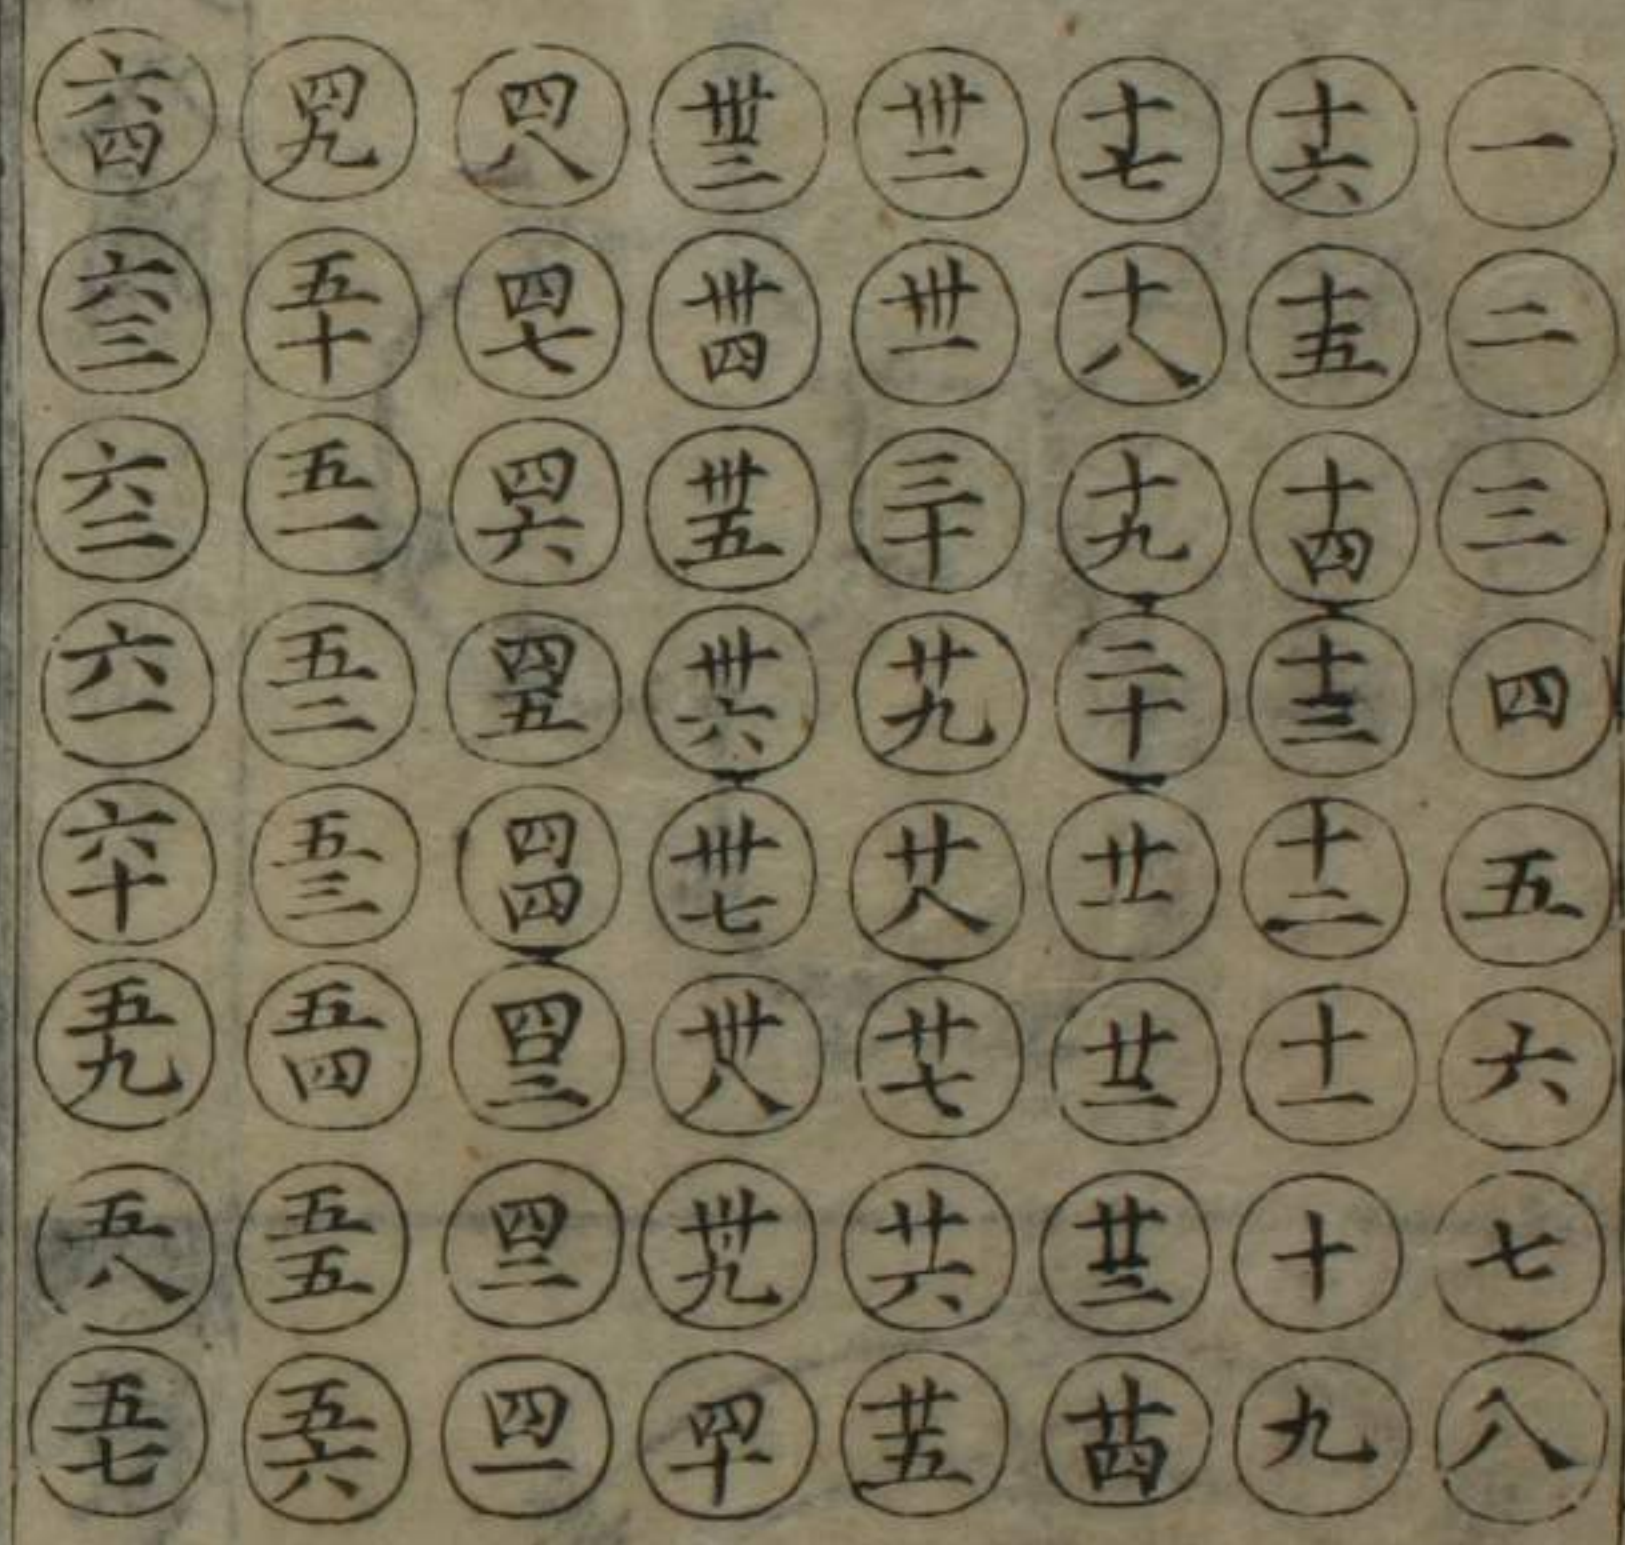 一 二 三 四 五 六 七 八
十六 十五 十四 十三 十二 十一 十 九
十七 十八 十九 二十 廿一 廿二 廿三 廿四
卅二 卅一 三十 廿九 廿八 廿七 廿六 廿五
卅三 卅四 卅五 卅六 卅七 卅八 卅九 四十
四八 四七 四六 四五 四四 四三 四二 四一
四九 五十 五一 五二 五三 五四 五五 五六
六四 六三 六二 六一 六十 五九 五八 五七